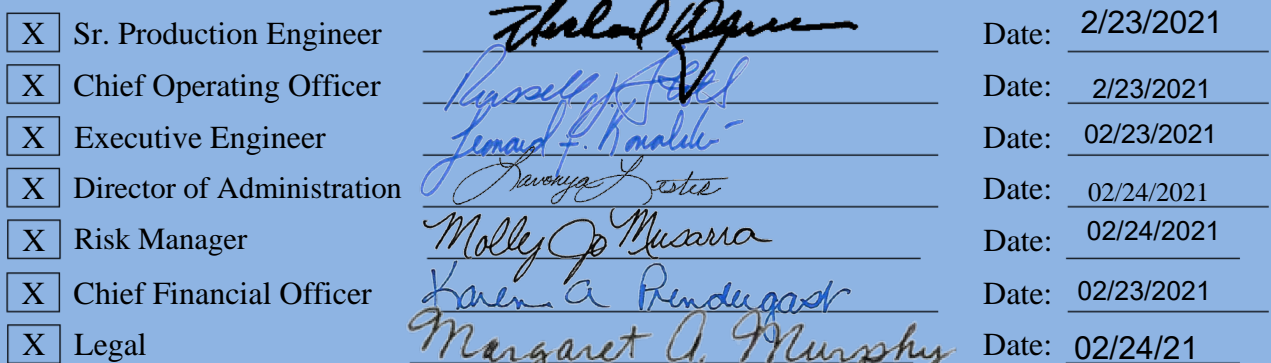 X Sr. Production Engineer Date: 2/23/2021
X Chief Operating Officer Russell J. Date: 2/23/2021
X Executive Engineer Leonard F. Date: 02/23/2021
X Director of Administration Lavonya Lester Date: 02/24/2021
X Risk Manager Molly Jo Musarra Date: 02/24/2021
X Chief Financial Officer Karen A Prendergast Date: 02/23/2021
X Legal Margaret A. Murphy Date: 02/24/21